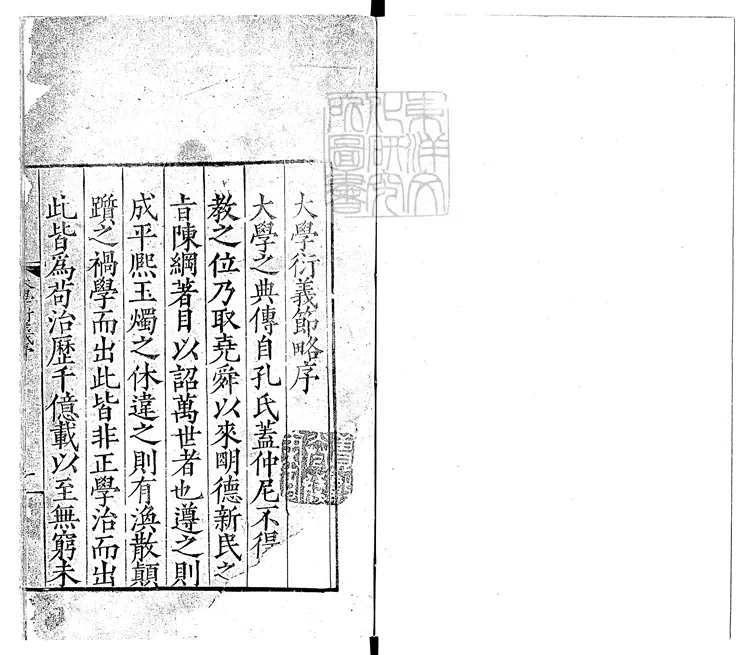 大學衍義節略序
大學之典傳自孔氏蓋仲尼不得
教之位乃取堯舜以來明德新民之
旨陳綱著目以詔萬世者也遵之則
成平熈玉燭之休違之則有渙散顛
躋之禍學而出此皆非正學治而出
此皆為苟治歷千億載以至無窮未
東洋文
化研究
所圖書